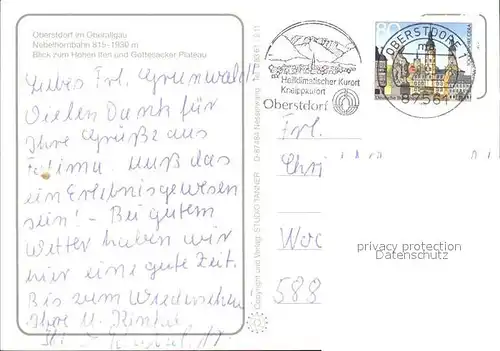 Oberstdorf im Oberallgäu
Nebelhornbahn 815-1930 m
Blick zum Hohen Ifen und Gottesacker Plateau
Liebes Frl. Grunwald!
Vielen Dank für
Ihre Grüße aus
Fatima. Muß das
ein Erlebnis gewesen
sein! - Bei gutem
Wetter haben wir
hier eine gute Zeit.
Bis zum Wiedersehn
Ihre
Copyright und Verlag: STUDIO TANNER
D-87484 Nesselwang
Heilklimatischer Kurort
Kneippkurort
Oberstdorf
80
OBERSTDORF 1
87561
Frl.
Chri
588
privacy protection
Datenschutz